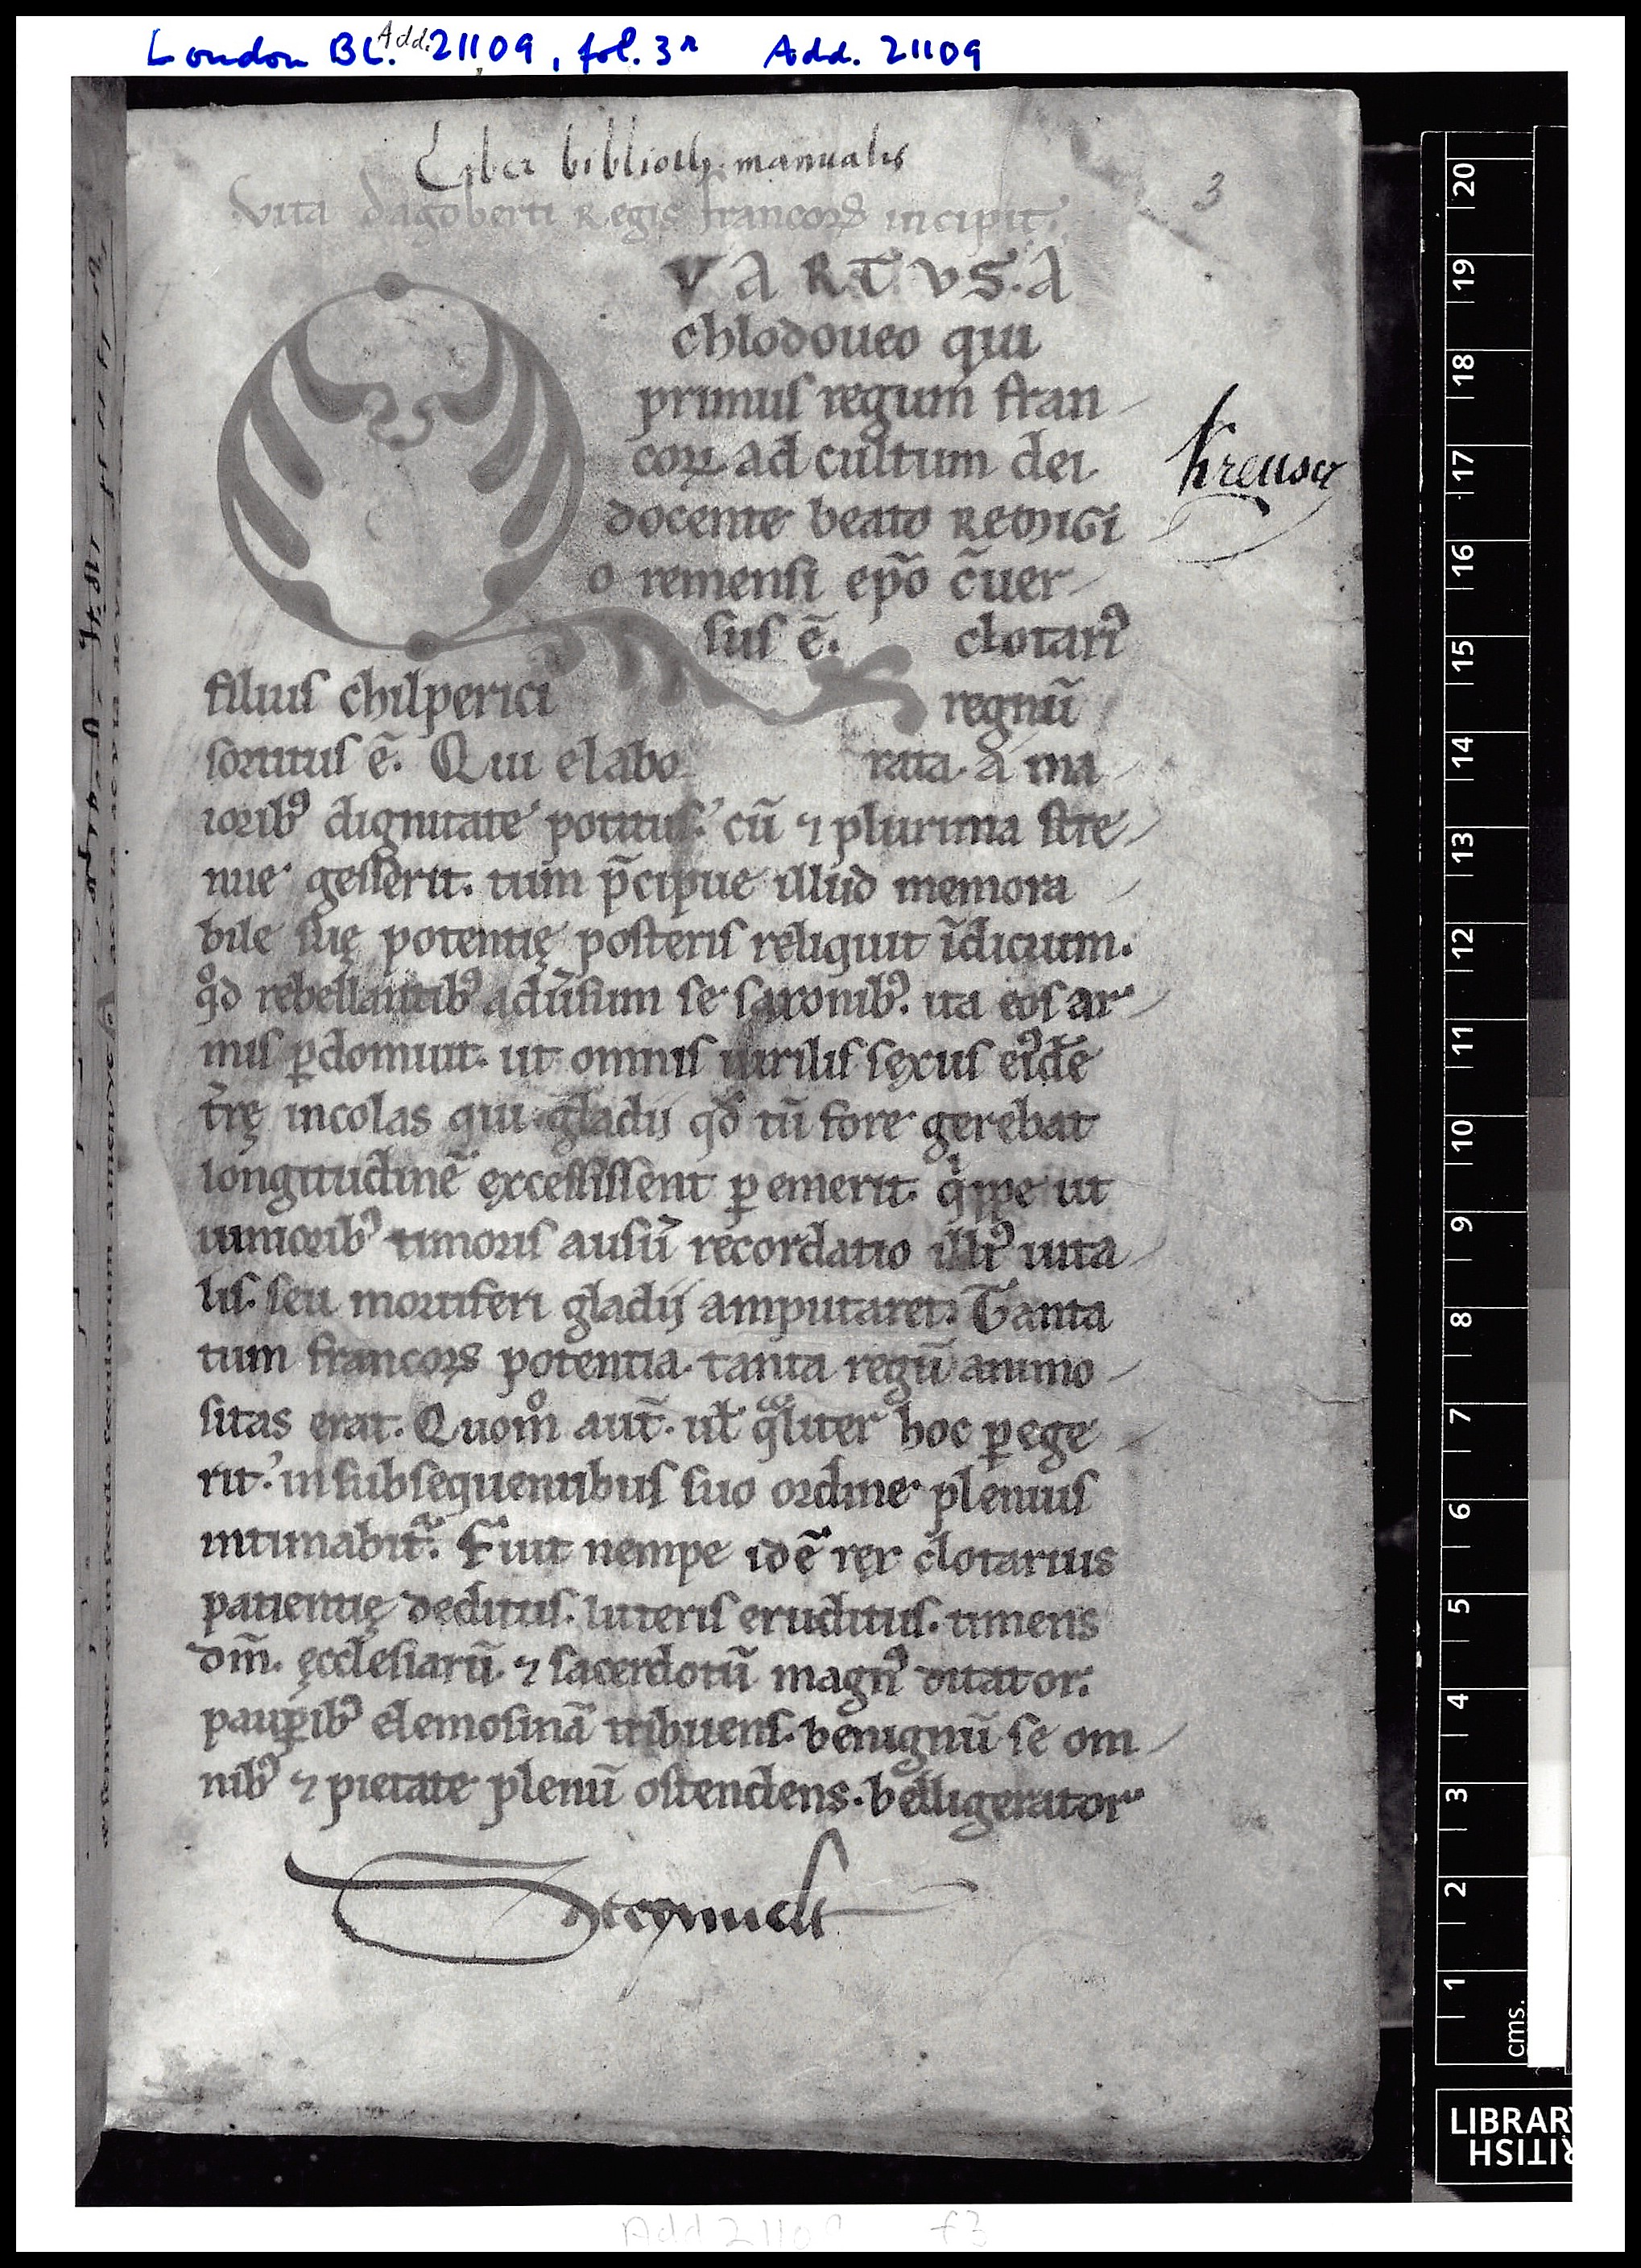 London BL. Add. 21109, fol. 3r Add. 21109
Liber biblioth. manualis
3
Vita dagoberti Regis francoꝝ incipit.
QVARTVS. A
chlodoueo qui
primus regum fran
coꝝ ad cultum dei
docente beato REMIGI
o remensi ep̄o c̄uer
sus ē. clotariꝰ
filius chilperici regnū
sortitus ē. Qui elabo rata a ma
ioribꝰ dignitate potitus. cū ⁊ plurima stre
nue gesserit. tum p̄cipue illud memora
bile suę potentię posteris reliquit īdicium.
qͦd rebellantibꝰ aduͥsum se saxonibꝰ. ita eos ar
mis ꝑdomuit. ut omnis uirilis sęxus eiꝰdē
t̄rę incolas qui gladii qđ tū fore gerebat
longitudinē ęxcessissent ꝑemerit. qͥppe ut
iunioribꝰ timoris ausū recordatio illiꝰ uita
lis. seu mortiferi gladii amputaret. Tanta
tum francoꝝ potentia. tanta regū animo
sitas erat. Quom̊ aut̄. ul̄ qͣliter hoc ꝑege
rit. in subsequentibus suo ordine plenius
intimabit᷑. Fuit nempe idē ręx clotarius
patientię deditus. litteris eruditus. timens
dm̄. ęcclesiarū. ⁊ sacerdotū magnꝰ ditator.
pauꝑibꝰ elemosinā tribuens. benignū se om
nibꝰ ⁊ pietate plenū ostendens. belligerator
Kreuser
cms.
1 2 3 4 5 6 7 8 9 10 11 12 13 14 15 16 17 18 19 20
LIBRARY
BRITISH
Add 21109 f3